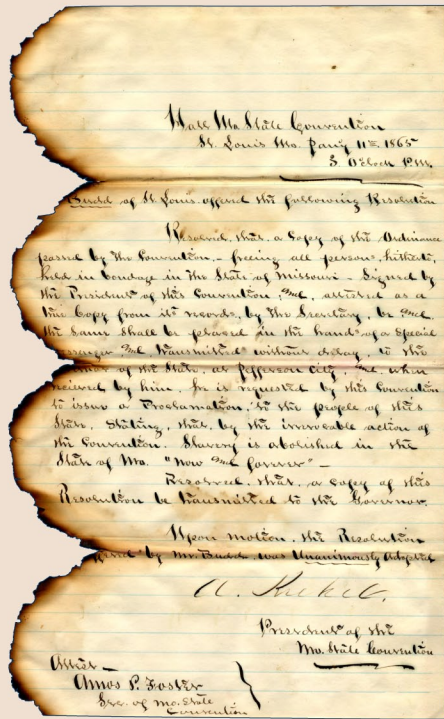 Hall Mo State Convention
St. Louis Mo. Jany 11th 1865
3 O'Clock P.M.
Budd of St Louis offered the following Resolution
Resolved, that, a Copy of the Ordinance
passed by the Convention, – freeing all persons, hitherto,
held in bondage in the State of Missouri – Signed by
the President of this Convention, and, attested as a
true Copy from its records, by the Secretary, be and,
the same shall be placed in the hands of a Special
ssenger and transmitted without delay, to the
of the State, at Jefferson City and, when
recieved by him, he is requested by this Convention
to issue a Proclamation, to the people of this
State, Stating, that, by the irrevocable action of
the Convention, Slavery is abolished in the
State of Mo. "now and forever" –
Resolved, that, a Copy of this
Resolution be transmitted to the Governor.
Upon motion, the Resolution
by Mr. Budd, was Unanimously Adopted
A. Krekel.
President of the
Mo. State Convention
Attest –
Amos P. Foster
Sec. of Mo. State
Convention